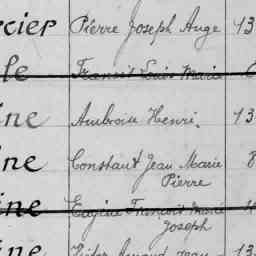 rcier Pierre Joseph Ange 13
le Francis Louis Marie
ine Ambroise Henri. 13
ine Constant Jean Marie 8
Pierre
ine Eugène François Marie
Joseph
ine Victor Armand Jean 13